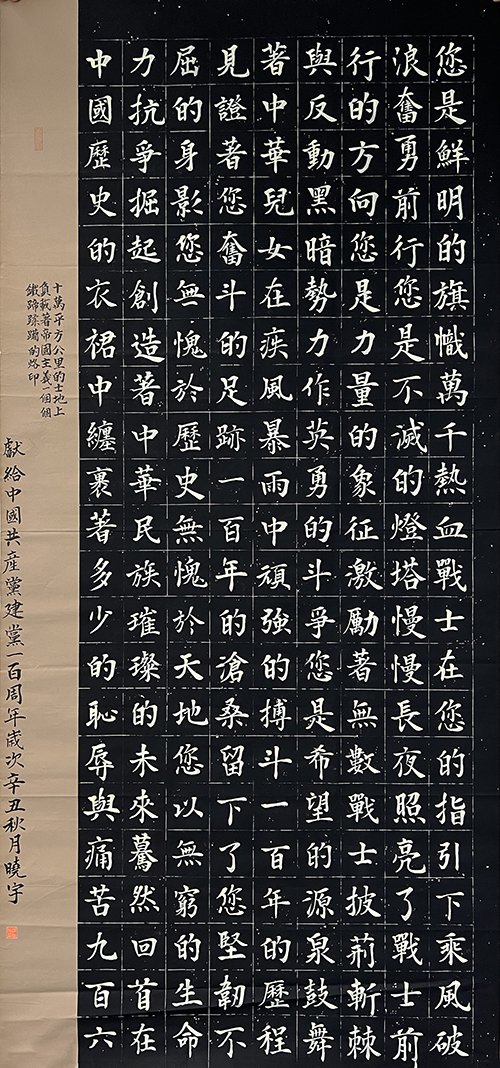 您是鮮明的旗幟萬千熱血戰士在您的指引下乘風破
浪奮勇前行您是不滅的燈塔慢慢長夜照亮了戰士前
行的方向您是力量的象征激勵著無數戰士披荊斬棘
與反動黑暗勢力作英勇的斗爭您是希望的源泉鼓舞
著中華兒女在疾風暴雨中頑強的搏斗一百年的歷程
見證著您奮斗的足跡一百年的滄桑留下了您堅韌不
屈的身影您無愧於歷史無愧於天地您以無窮的生命
力抗爭掘起創造著中華民族璀璨的未來驀然回首在
中國歷史的衣裙中纏裹著多少的恥辱與痛苦九百六
十萬平方公里的土地上
負載著帝國主義一個個
鐵蹄蹂躪的烙印
獻給中國共產黨建黨一百周年歲次辛丑秋月曉宇